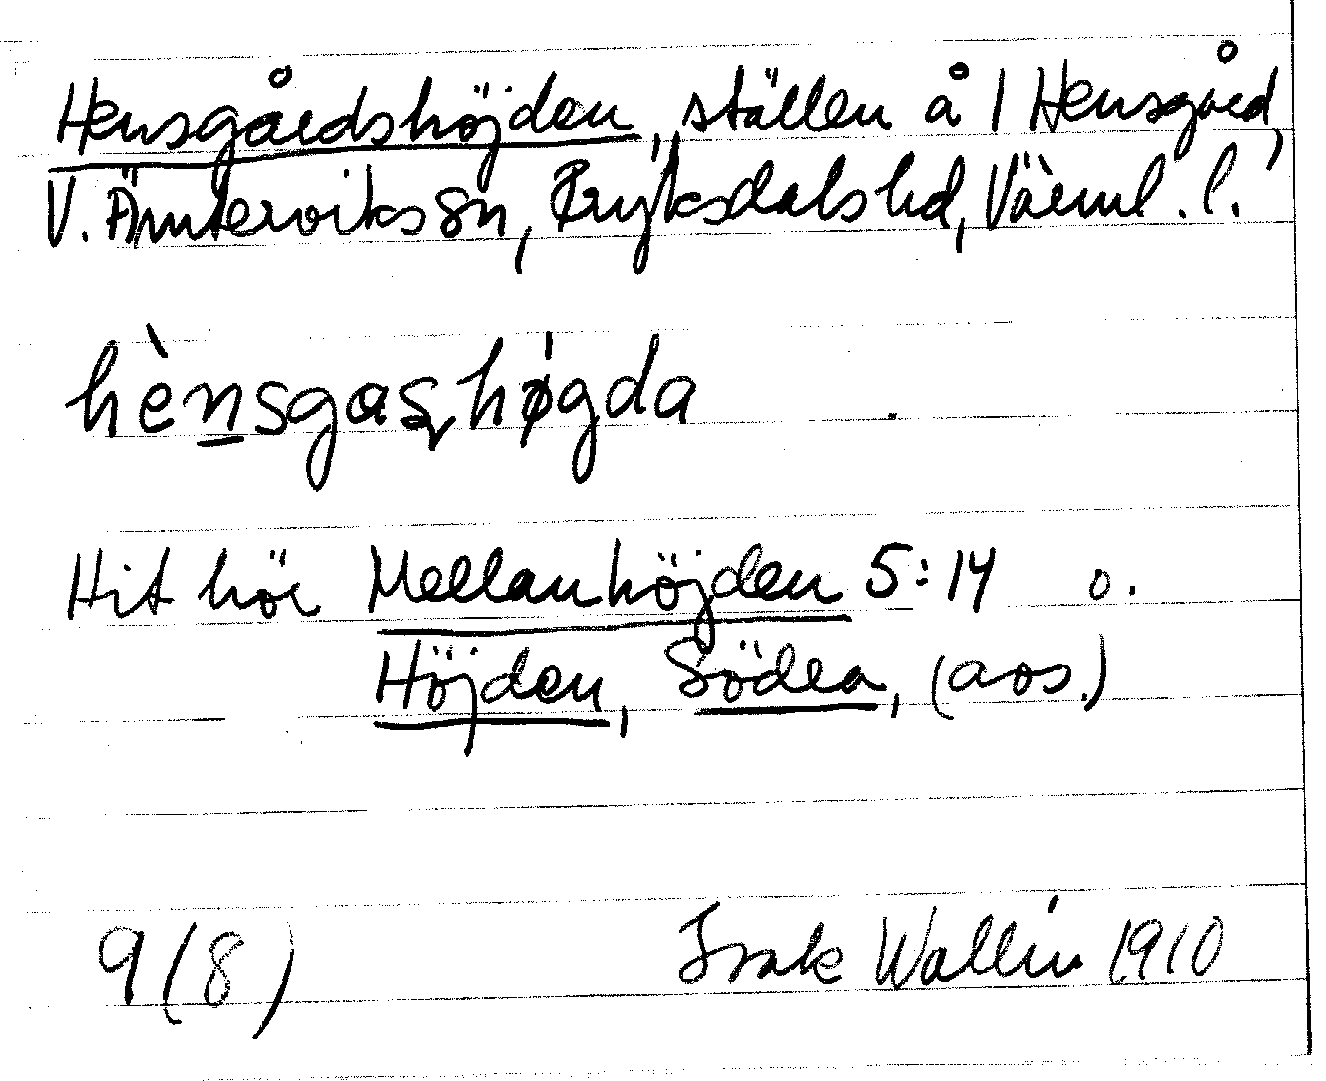 Hensgårdshöjden, ställen å 1 Hensgård,
V. Ämterviks sn, Fryksdals hd, Värml. l.
hènsgaʂhøgda
Hit hör Mellanhöjden 5:14 o.
Höjden, Södra, (aos.)
9 (8) Isak Wallin 1910